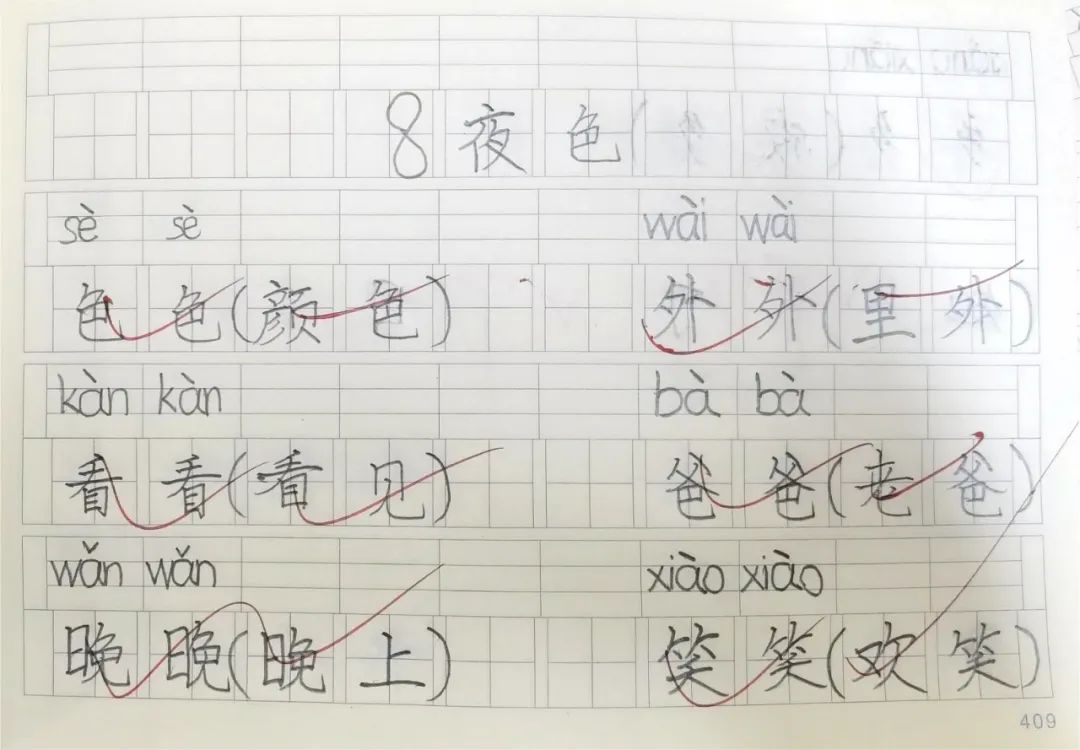 8 夜色
sè sè wài wài
色 色(颜色) 外 外(里外)
kàn kàn bà bà
看 看(看见) 爸 爸(老爸)
wǎn wǎn xiào xiào
晚 晚(晚上) 笑 笑(欢笑)
409